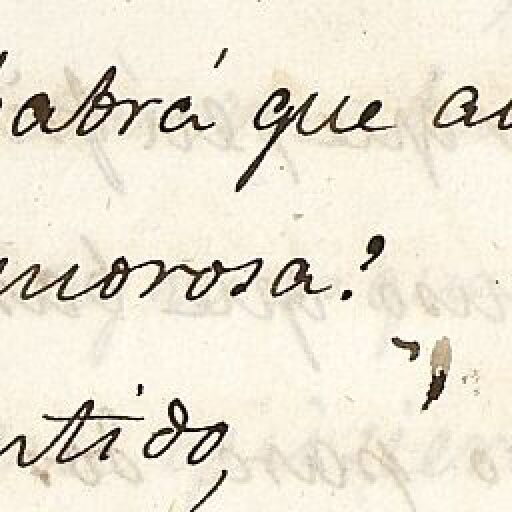 abrá que au
morosa?
ntido,